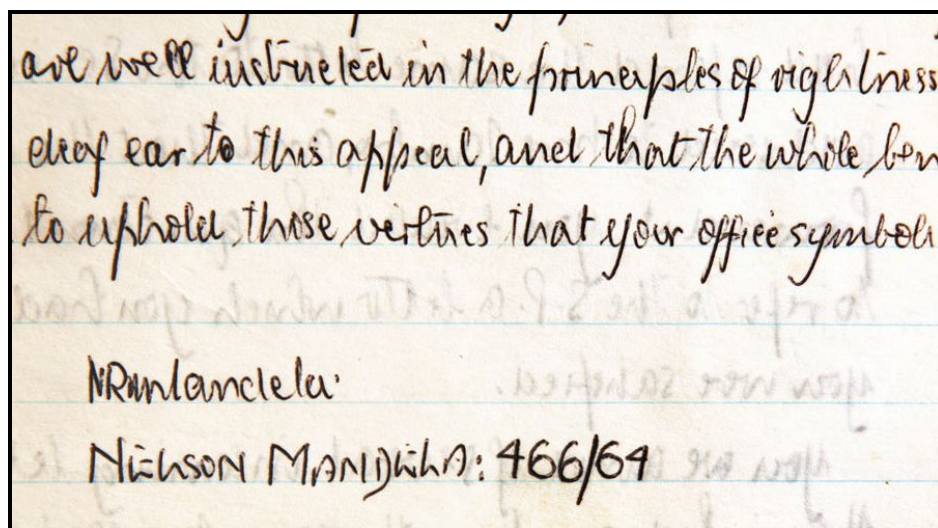 are well instructed in the principles of rightness
deaf ear to this appeal, and that the whole ben
to uphold those virtues that your office symboli
NRMandela.
NELSON MANDELA: 466/64